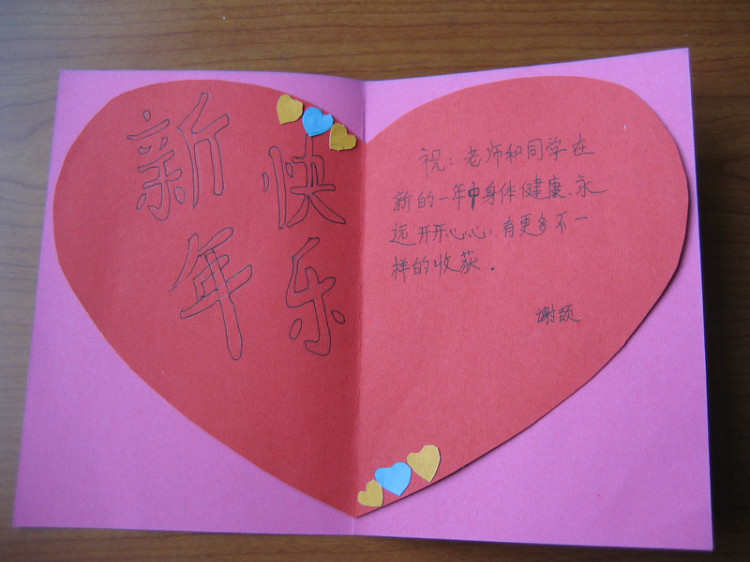 新年
快乐
祝：老师和同学在
新的一年中身体健康、永
远开开心心，有更多不一
样的收获．
谢